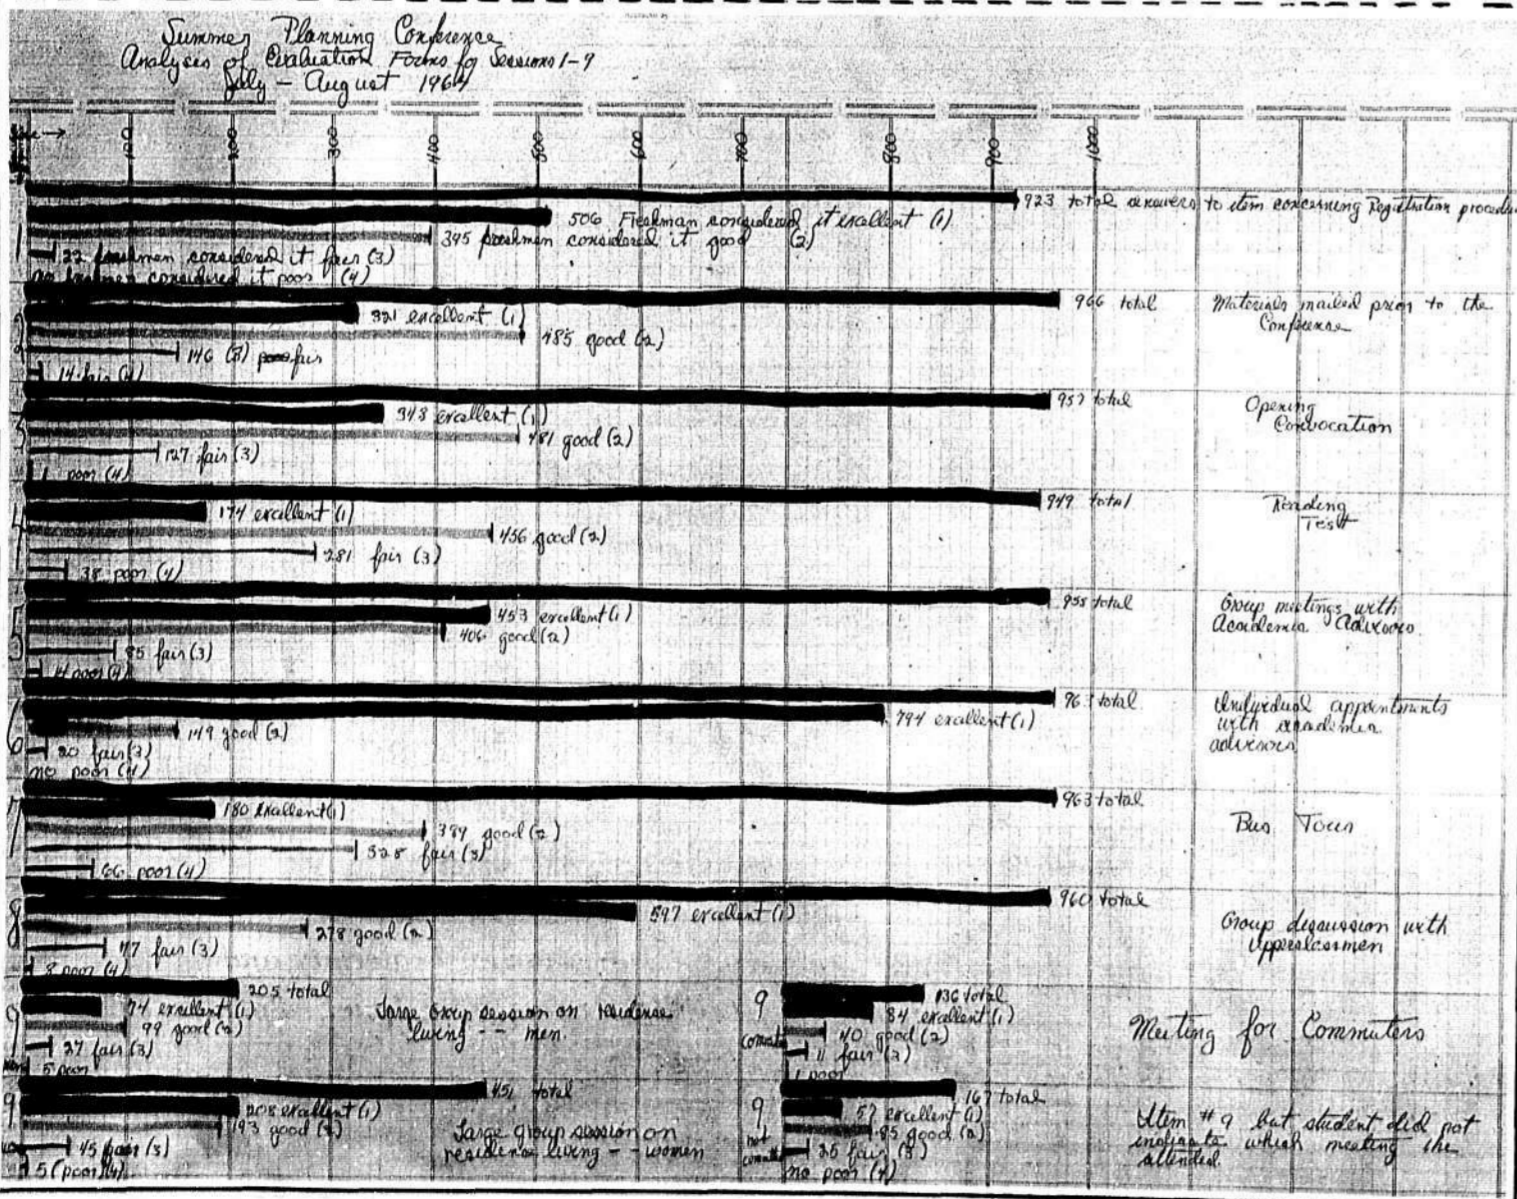 Summer Planning Conference
Analyses of Evaluation Forms for Sessions 1-9
July - August 1964
100 200 300 400 500 600 700 800 900 1000
1
923 total answers to item concerning Registration procedu
506 Freshman considered it excellent (1)
395 freshmen considered it good (2)
22 freshmen considered it fair (3)
no freshmen considered it poor (4)
2
966 total
Materials mailed prior to the
Conference
321 excellent (1)
485 good (2)
146 (3) fair
14 fair (4)
3
957 total
Opening
Convocation
348 excellent (1)
481 good (2)
127 fair (3)
1 poor (4)
4
949 total
Reading
Test
174 excellent (1)
456 good (2)
281 fair (3)
38 poor (4)
5
958 total
Group meetings with
Academic Advisors
453 excellent (1)
406 good (2)
85 fair (3)
14 poor (4)
6
963 total
Individual appointments
with academic
advisors
794 excellent (1)
149 good (2)
20 fair (3)
no poor (4)
7
963 total
Bus Tour
180 excellent (1)
389 good (2)
328 fair (3)
66 poor (4)
8
960 total
Group discussion with
Upperclassmen
597 excellent (1)
278 good (2)
77 fair (3)
8 poor (4)
9
205 total
74 excellent (1)
99 good (2)
27 fair (3)
5 poor
Large Group session on residence
living -- men
9
136 total
84 excellent (1)
40 good (2)
11 fair (3)
1 poor
Meeting for Commuters
9
451 total
208 excellent (1)
193 good (2)
45 fair (3)
5 (poor) (4)
Large group session on
residence living -- women
9
not
167 total
57 excellent (1)
85 good (2)
25 fair (3)
no poor (4)
Item # 9 but student did not
indicate which meeting she
attended.